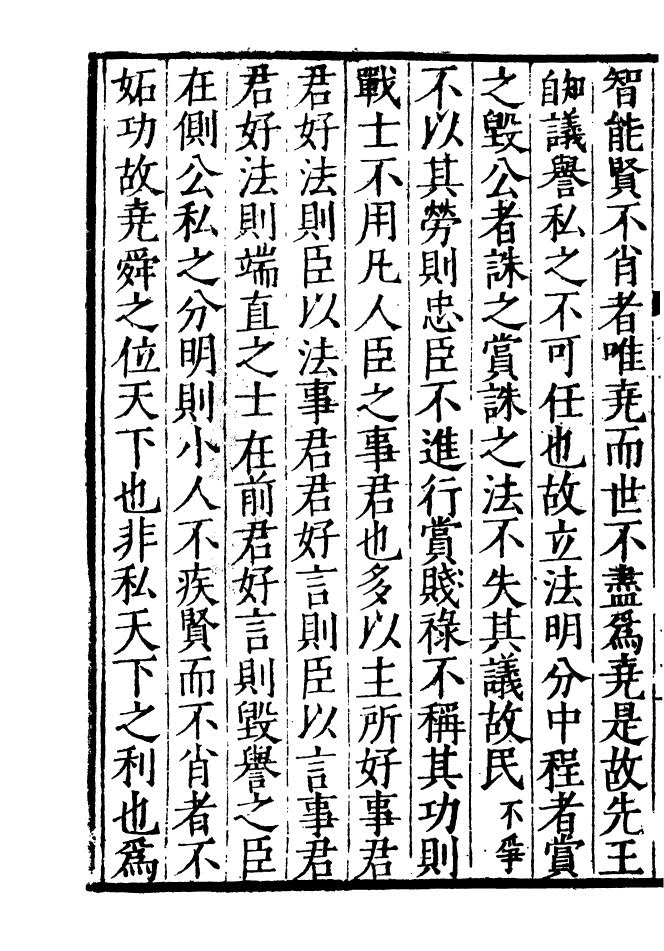 智能賢不肖者唯堯而世不盡爲堯是故先王
知自議譽私之不可任也故立法明分中程者賞
之毀公者誅之賞誅之法不失其議故民不爭
不以其勞則忠臣不進行賞賤祿不稱其功則
戰士不用凡人臣之事君也多以主所好事君
君好法則臣以法事君君好言則臣以言事君
君好法則端直之士在前君好言則毀譽之臣
在側公私之分明則小人不疾賢而不肖者不
妬功故堯舜之位天下也非私天下之利也爲